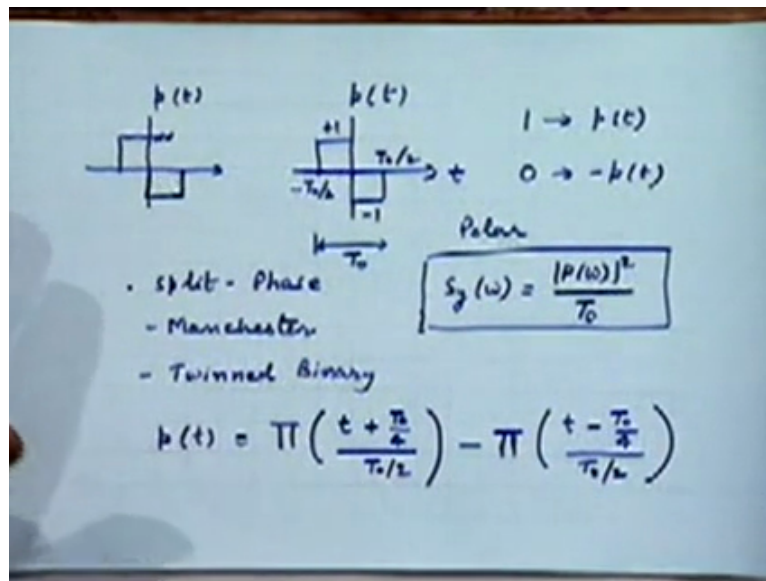 p(t) p(t)
+1
-T₀/2 T₀/2 t
-1
T₀
1 → p(t)
0 → -p(t)
Polar
S_y(ω) = |P(ω)|² / T₀
. Split - Phase
- Manchester
- Twinned Binary
p(t) = Π((t + T₀/4) / (T₀/2)) - Π((t - T₀/4) / (T₀/2))